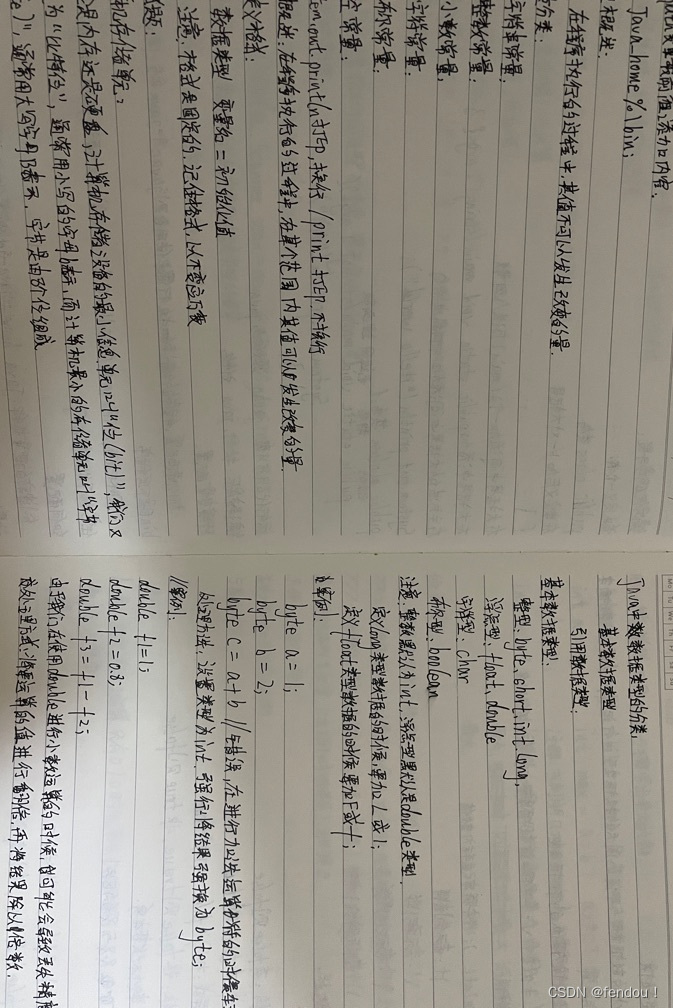 添加内容.
Java_home%\bin;
在程序执行的过程中,其值不可以发生改变的量.
分类:
字符串常量:
整数常量:
小数常量:
字符常量:
布尔常量:
空常量:
em.out.println打印,换行 / print打印.不换行
概述:在程序执行的过程中,在某个范围内其值可以发生改变的量.
定义格式:
数据类型 变量名 = 初始化值
注意:格式是固定的,记住格式,以不变应万变
机存储单元?
是内存还是硬盘,计算机存储设备的最小信息单元叫"位(bit)",我们又
为"比特位",通常用小写的字母b表示,而计算机最小的存储单元叫"字节
e)",通常用大写字母B表示,字节是由 位组成
Java中数据类型的分类,
基本数据类型
引用数据类型;
基本数据类型:
整型:byte,short,int,long,
浮点型:float,double
字符型:char
布尔型:boolean
注意:整数默认为int,浮点型默认是double类型.
定义long类型数据的时候,要加L或l;
定义float类型数据的时候要加F或f;
案例:
byte a = 1;
byte b = 2;
byte c = a+b //错误,在进行加法运算 的时候
处理方法:设置类型为int,强行将结果强换为byte;
//案例:
double f1=1;
double f2=0.8;
double f3 = f1-f2;
由于我们在使用double进行小数运算的时候,有可能会导致丢失精
处理方式:将要运算的值进行翻倍,再将结果除以 倍数.
CSDN @fendou!